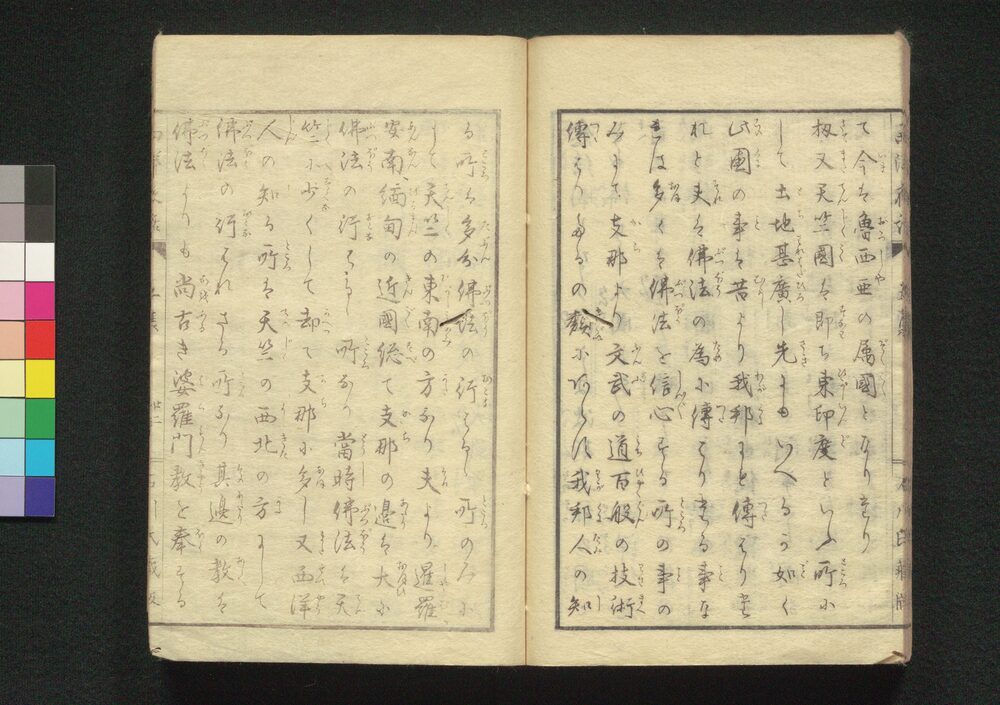 て今は魯西亜の属國となりたり
扨又天竺國は即ち東印度といふ所に
して土地甚廣し先にもいへるが如く
此國の事は昔より我邦にも傳はりた
れど夫は佛法の為に傳はりたる事な
れは多くは佛法を信心する所の事の
みにて支那より文武の道百般の技術
傳はりたるの類にあらず我邦人の知
る所は多分佛法の行はるゝ所のみに
して天竺の東南の方なり夫より暹羅
安南緬甸の近國総て支那の邉は大に
佛法の行はるゝ所なり當時佛法は天
竺に少くして却て支那に多し又西洋
人の知る所は天竺の西北の方にして
佛法の行はれざる所なり其邉の教は
佛法よりも尚古き婆羅門教を奉する